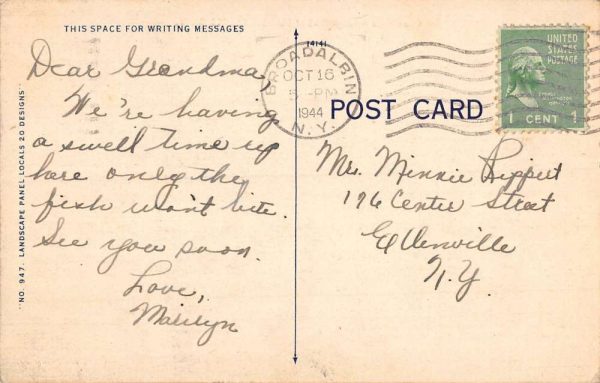 THIS SPACE FOR WRITING MESSAGES
Dear Grandma,
We're having
a swell time up
here only the
fish won't bite.
See you soon.
Love,
Marilyn
"NO. 947. LANDSCAPE PANEL LOCALS 20 DESIGNS"
14141
BROADALBIN
OCT 16
5 -PM
1944
N.Y.
POST CARD
UNITED
STATES
POSTAGE
1 CENT 1
Mr. Minnie Rippert
176 Center Street
Ellenville
N.Y.